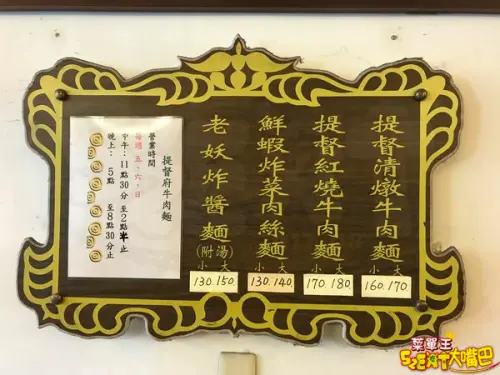 提督清燉牛肉麵
小 大
160.170
提督紅燒牛肉麵
小 大
170.180
鮮蝦炸菜肉絲麵
小 大
130.140
老妖炸醬麵(附湯)
小 大
130.150
提督府牛肉麵
營業時間
每週五、六、日
中午：11點30分至2點半止
晚上：5點至8點30分止
菜單王
523EAT大嘴巴